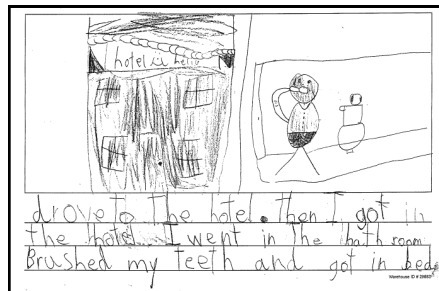 hotel hello
drove to the hotel. then I got in
the hotel I went in the bath room
Brushed my teeth and got in bed
Warehouse ID #